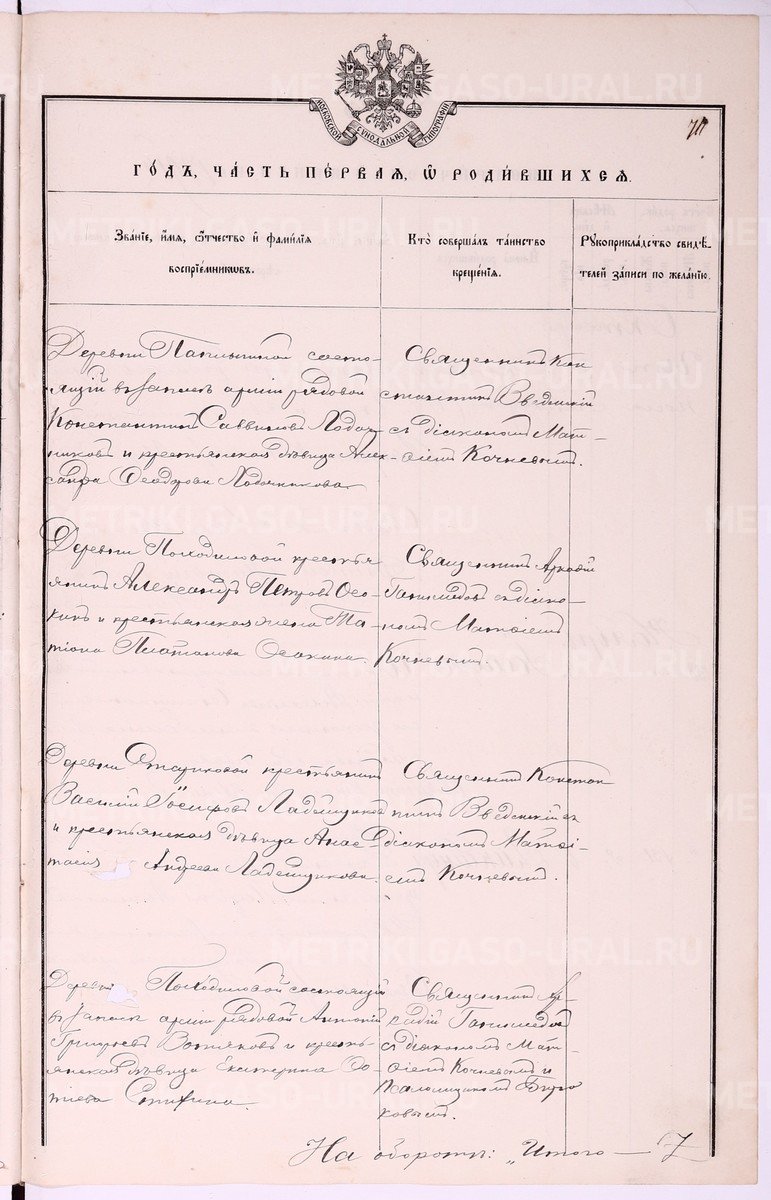 МОСКОВСКОЙ СѴНОДАЛЬНОЙ ТИПОГРАФІИ
ГО́ДЪ, ЧА́СТЬ ПЕ́РВАЯ, Ѡ҆ РОДИ́ВШИХСЯ.
Зва́нїе, и҆́мя, ѻ҆́тчество и҆ фами́лїя
воспрїе́мникѡвъ.
Кто̀ соверша́лъ та́инство
креще́нїя.
Рꙋкоприкла́дство свидѣ́-
телей за́писи по жела́нїю.
Деревни состо-
ящій въ запасѣ арміи рядовой
Константинъ Саввиновъ Лодоч-
никовъ и крестьянская дѣвица Алек-
сандра Ѳеодорова Лодочникова.
Священникъ Кон
стантинъ Введенскій
съ діакономъ Мат-
ѳіемъ Кочневымъ.
Деревни Походиловой крестья
янинъ Александръ Петровъ Осо-
кинъ и крестьянская жена Та-
тіана Платонова Осокина.
Священникъ Аркадій
Ганимедовъ съ діако-
номъ Матѳіемъ
Кочневымъ.
Деревни крестьянинъ
Василій Іосифовъ Ладейщиковъ
и крестьянская дѣвица Анас
тасія Андреева Ладейщикова.
Священникъ Констан
тинъ Введенскій съ
діакономъ Матѳі-
емъ Кочневымъ.
Деревни Походиловой состоящій
въ запасѣ арміи рядовой Антоній
Григорьевъ Вотяковъ и кресть-
янская дѣвица Екатерина Ѳо-
тіева
Священникъ Ар-
кадій Ганимедовъ
съ діакономъ Мат-
ѳіемъ Кочневымъ и
псаломщикомъ
ковымъ.
На оборотѣ: „Итого — 7